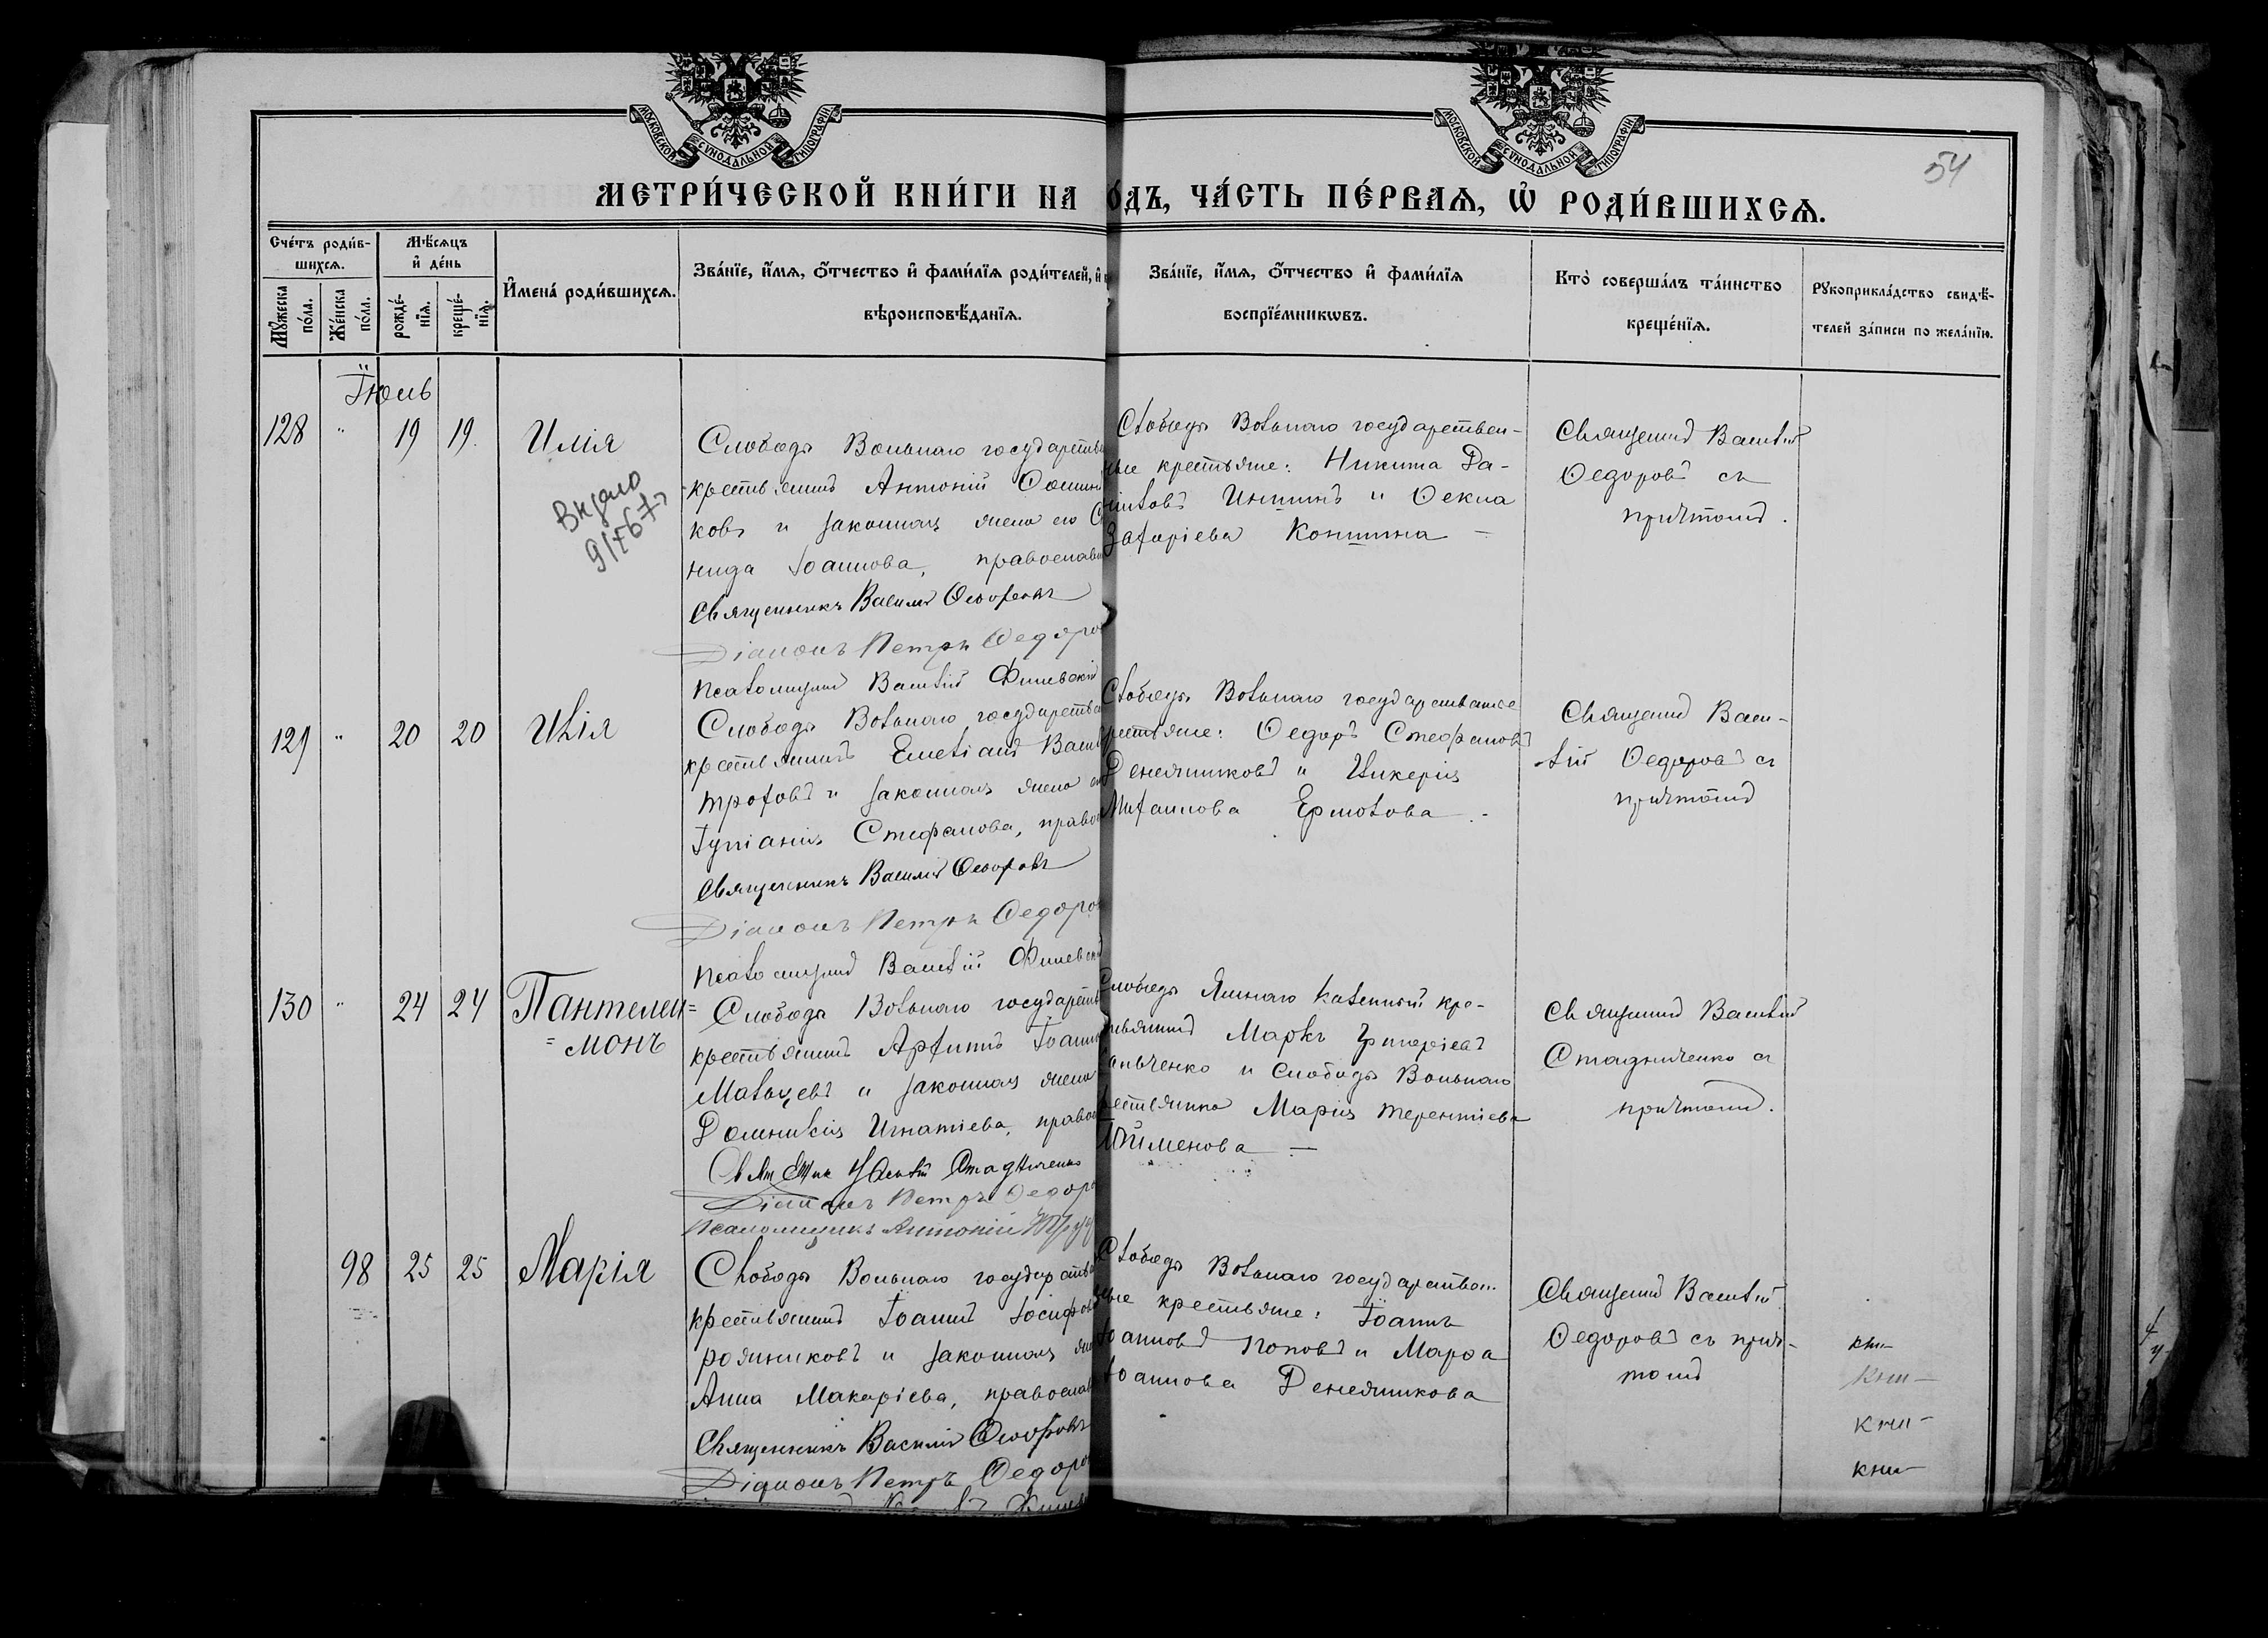 МОСКОВСКОЙ СУНОДАЛЬНОЙ ТИПОГРАФІИ
МОСКОВСКОЙ СУНОДАЛЬНОЙ ТИПОГРАФІИ
54
МЕТРИ́ЧЕСКОЙ КНИ́ГИ НА
О́ДЪ, ЧА́СТЬ ПЕ́РВАѦ, Ѡ҆ РОДИ́ВШИХСѦ.
Сче́тъ роди́в-
шихсѧ.
Мꙋ́жеска по́ла.
Же́нска по́ла.
Мѣ́сѧцъ
и҆ де́нь
рожде́-
нїѧ.
креще́-
нїѧ.
И҆мена̀ роди́вшихсѧ.
Зва́нїе, и҆́мѧ, ѻ҆́тчество и҆ фами́лїѧ роди́телей, и҆
вѣроисповѣ́данїѧ.
Зва́нїе, и҆́мѧ, ѻ҆́тчество и҆ фами́лїѧ
воспрїе́мникѡвъ.
Кто̀ соверша́лъ та́инство
креще́нїѧ.
Рꙋкоприкла́дство свидѣ́-
телей за́писи по жела́нїю.
Іюль
128 " 19 19. Илія
Слободы Вольнаго государствен
крестьянинъ Антоній
ковъ и законная жена его
нида Іоаннова, православн
Священникъ Василій Ѳеодоровъ
Діаконъ Петръ Ѳедоров
Псаломщикъ Василій
Слободы Вольнаго государствен-
ные крестьяне: Никита Да-
ниловъ и Ѳекла
Захаріева
Священникъ Василій
Ѳедоровъ съ
причтомъ.
Видано
129 " 20 20 Илія
Слободы Вольнаго государствен
крестьянинъ Емеліанъ Васил
троховъ и законная жена его
Іуліанія Стефанова, правос
Священникъ Василій Ѳеодоровъ
Діаконъ Петръ Ѳедоров
Псаломщикъ Василій
Слободы Вольнаго государственные
крестьяне: Ѳедоръ Стефановъ
Денежниковъ и Гликерія
Михаилова Ермолова.-
Священникъ Васи-
лій Ѳедоровъ съ
причтомъ
130 " 24 24 Пантелеи=
=монъ
Слободы Вольнаго государств
крестьянинъ Архипъ Іоанн
Мальцевъ и законная жена
Домникія Игнатіева, правос
Василій Стадниченко
Діаконъ Петръ Ѳедоро
Псаломщикъ Антоній
Слободы кре-
стьянинъ Маркъ Григоріевъ
и Слободы Вольнаго
крестьянка Марія Терентіева
Священникъ Василій
Стадниченко съ
причтомъ.
98 25 25 Марія
Слободы Вольнаго государствен
крестьянинъ Іоаннъ Іосифов
и законная жен
Анна Макаріева, православ
Священникъ Василій Ѳеодоровъ
Діаконъ Петръ Ѳедоро
Слободы Вольнаго государствен-
ные крестьяне: Іоаннъ
Іоанновъ Поповъ и Марѳа
Іоаннова Денежникова
Священникъ Василій
Ѳедоровъ съ прич-
томъ